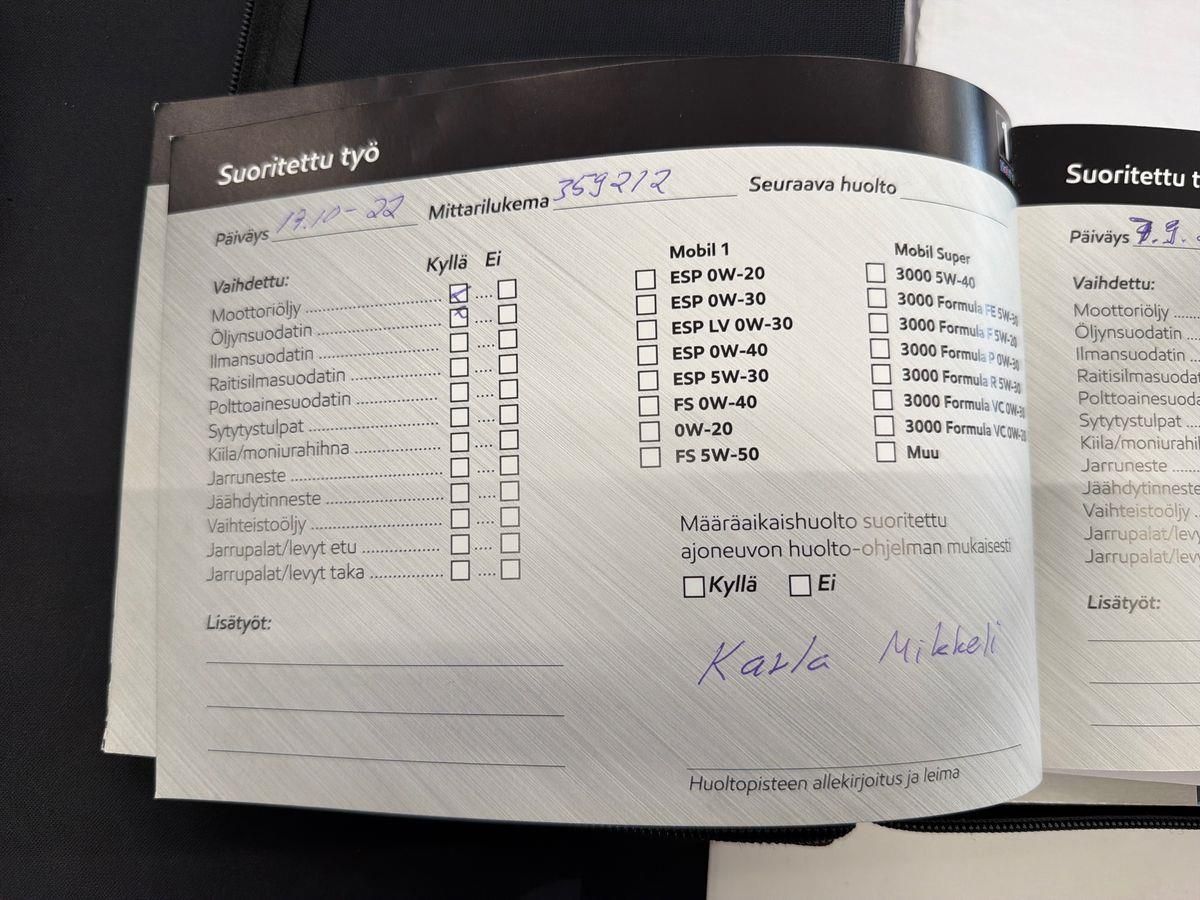 Suoritettu työ
Päiväys 17.10-22 Mittarilukema 359212 Seuraava huolto
Vaihdettu: Kyllä Ei
Moottoriöljy
Öljynsuodatin
Ilmansuodatin
Raitisilmasuodatin
Polttoainesuodatin
Sytytystulpat
Kiila/moniurahihna
Jarruneste
Jäähdytinneste
Vaihteistoöljy
Jarrupalat/levyt etu
Jarrupalat/levyt taka
Lisätyöt:
Mobil 1
ESP 0W-20
ESP 0W-30
ESP LV 0W-30
ESP 0W-40
ESP 5W-30
FS 0W-40
0W-20
FS 5W-50
Mobil Super
3000 5W-40
3000 Formula FE 5W-30
3000 Formula F 5W-20
3000 Formula P 0W-30
3000 Formula R 5W-30
3000 Formula VC 0W-30
3000 Formula VC 0W-20
Muu
Määräaikaishuolto suoritettu
ajoneuvon huolto-ohjelman mukaisesti
Kyllä Ei
Mikkeli
Huoltopisteen allekirjoitus ja leima
Suoritettu t
Päiväys 7.9.
Vaihdettu:
Moottoriöljy
Öljynsuodatin
Ilmansuodatin
Raitisilmasuodat
Polttoainesuodat
Sytytystulpat
Kiila/moniurahih
Jarruneste
Jäähdytinneste
Vaihteistoöljy
Jarrupalat/levy
Jarrupalat/levy
Lisätyöt: